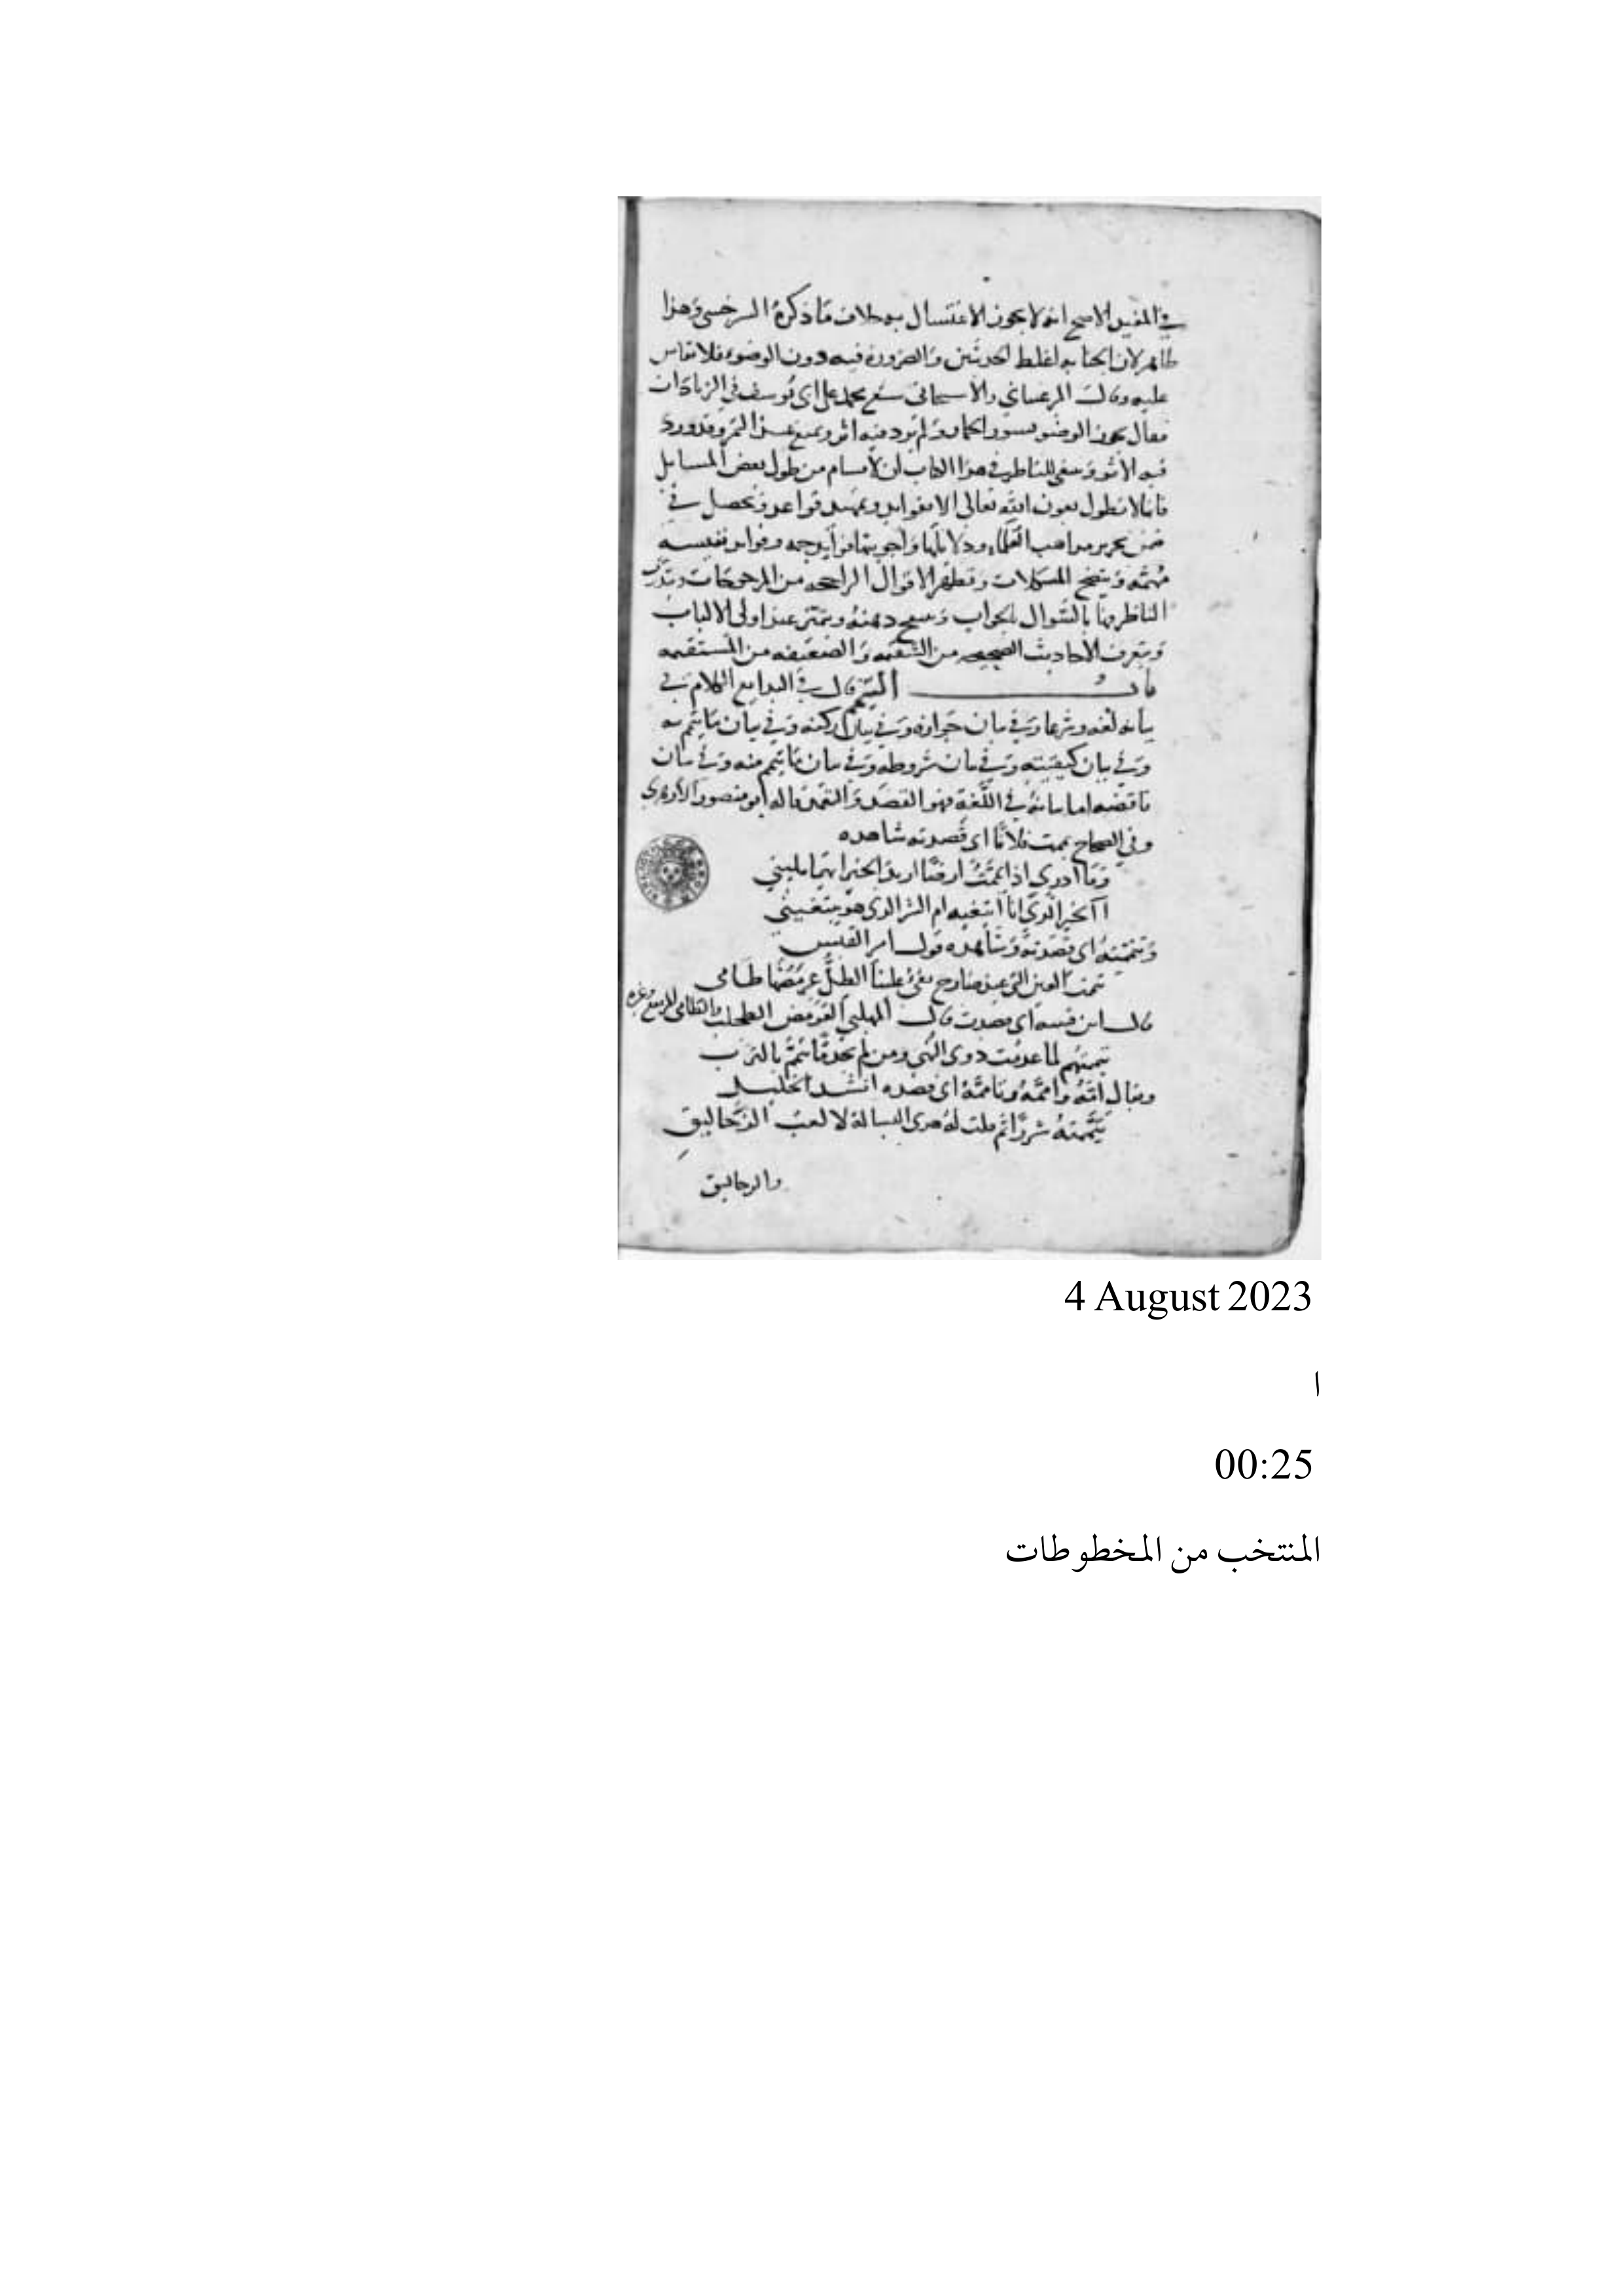 في المفيد الاصح انه لا يجوز الاغتسال به خلاف ما ذكره السرخسي وهذا
ظاهر لان الجنابه اغلظ الحدثين والضرورة فيه دون الوضوء فلا تقاس
عليه وقال المرغيناني والاسبيجابي محمد على ابي يوسف في الزيادات
فقال يجوز الوضو بسور الحمار ولم يرد فيه اثر ويمنع التمر وقد ورد
فيه الاثر وينبغي للناظر في هذا الكتاب ان لا يسام من طول بعض المسايل
فاننا لا نطول بعون الله تعالى الا بفوايد وتمهيد قواعد وتحصل في
ضمن تحرير مذاهب العلماء ودلايلها واجوبتها فوايد جمه وفوايد نفيسه
مهمه وتتضح المشكلات وتظهر الاقوال الراجحه من المرجوحات ويتدرب
الناظر فيها بالسوال والجواب ذهنه ويتميز عند اولى الالباب
ويتعرف الاحاديث الصحيحه من السقيمه والضعيفه من المستقيمه
باب التيمم قال في البدايع الكلام في
بيانه لغه وشرعا وفي بيان جوازه وفي بيان ركنه وفي بيان ما يتيمم به
وفي بيان كيفيته وفي بيان شروطه وفي بيان ما يتيمم منه وفي بيان
ناقضه اما بيانه في اللغة فهو القصد قاله ابو منصور الازهري
وفي الصحاح يممت فلانا اي قصدته شاهده
وما ادري اذا يممت ارضا اريد الخير ايهما يليني
أالخير الذي انا ابتغيه ام الشر الذي هو يبتغيني
وتيممته اي قصدته وشاهده قول امر القيس
تيممت العين التي عند ضارج يفيء عليها الظل عرمضها طامي
قال ابن قتيبه اي قصدت قال المهلبي العرمض الطحلب والطامي المرتفع وغيره
تيممتهم لما عدمت ذوى النهى ومن لم يجد ما تيمم بالترب
ويقال امّه وامّمه وتاممه اي قصده انشد الخليل
تيممته شزرا ثم قلت له هذى البسالة لا لعب الزحاليق
والزحاليق
4 August 2023
ا
00:25
المنتخب من المخطوطات